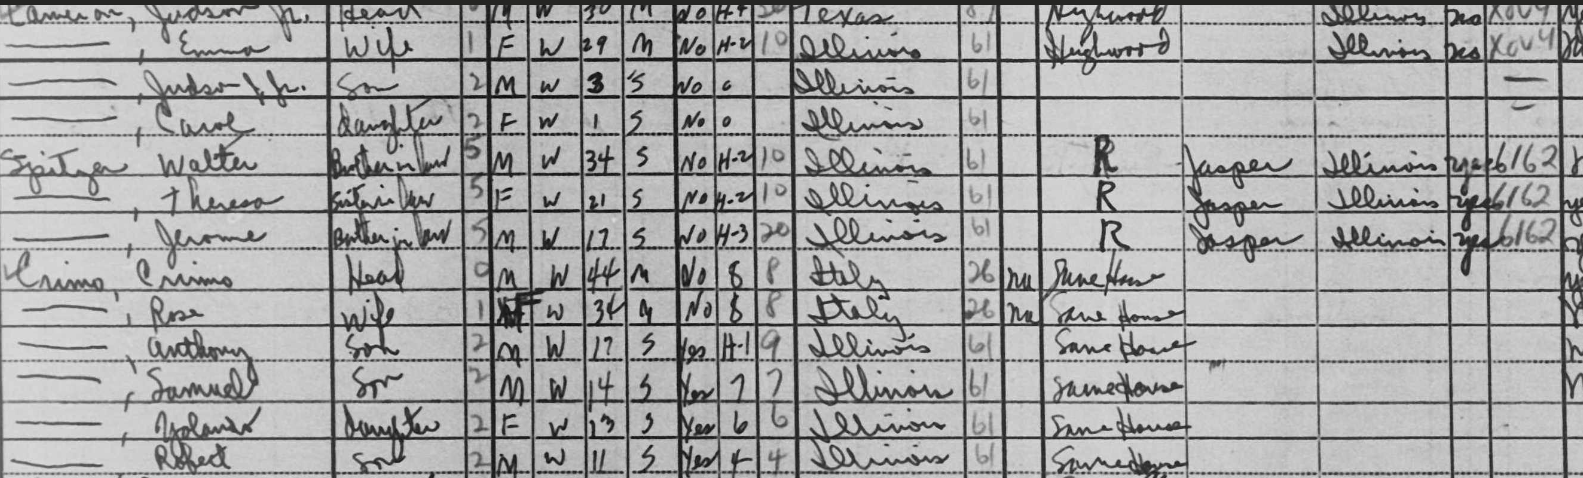 Cameron, Judson Jr. Head 0 M W 30 M No H-4 30 Texas 87 Highwood Illinois no X0V4
——, Emma Wife 1 F W 29 M No H-2 10 Illinois 61 Highwood Illinois no X0V4
——, Judson J. Jr. Son 2 M W 3 S No 0 Illinois 61 —
——, Carol daughter 2 F W 1 S No 0 Illinois 61 —
Spitzer Walter Brother in law 5 M W 34 S No H-2 10 Illinois 61 R Jasper Illinois yes 6162
——, Theresa Sister in law 5 F W 21 S No H-2 10 Illinois 61 R Jasper Illinois yes 6162
——, Jerome Brother in law 5 M W 17 S No H-3 20 Illinois 61 R Jasper Illinois yes 6162
Crimo, Crimo Head 0 M W 44 M No 8 8 Italy 26 na Same House
——, Rose Wife 1 F W 34 M No 8 8 Italy 26 na Same House
——, Anthony Son 2 M W 17 S Yes H-1 9 Illinois 61 Same House
——, Samuel Son 2 M W 14 S Yes 7 7 Illinois 61 Same House
——, Yolando daughter 2 F W 13 S Yes 6 6 Illinois 61 Same House
——, Robert Son 2 M W 11 S Yes 4 4 Illinois 61 Same House